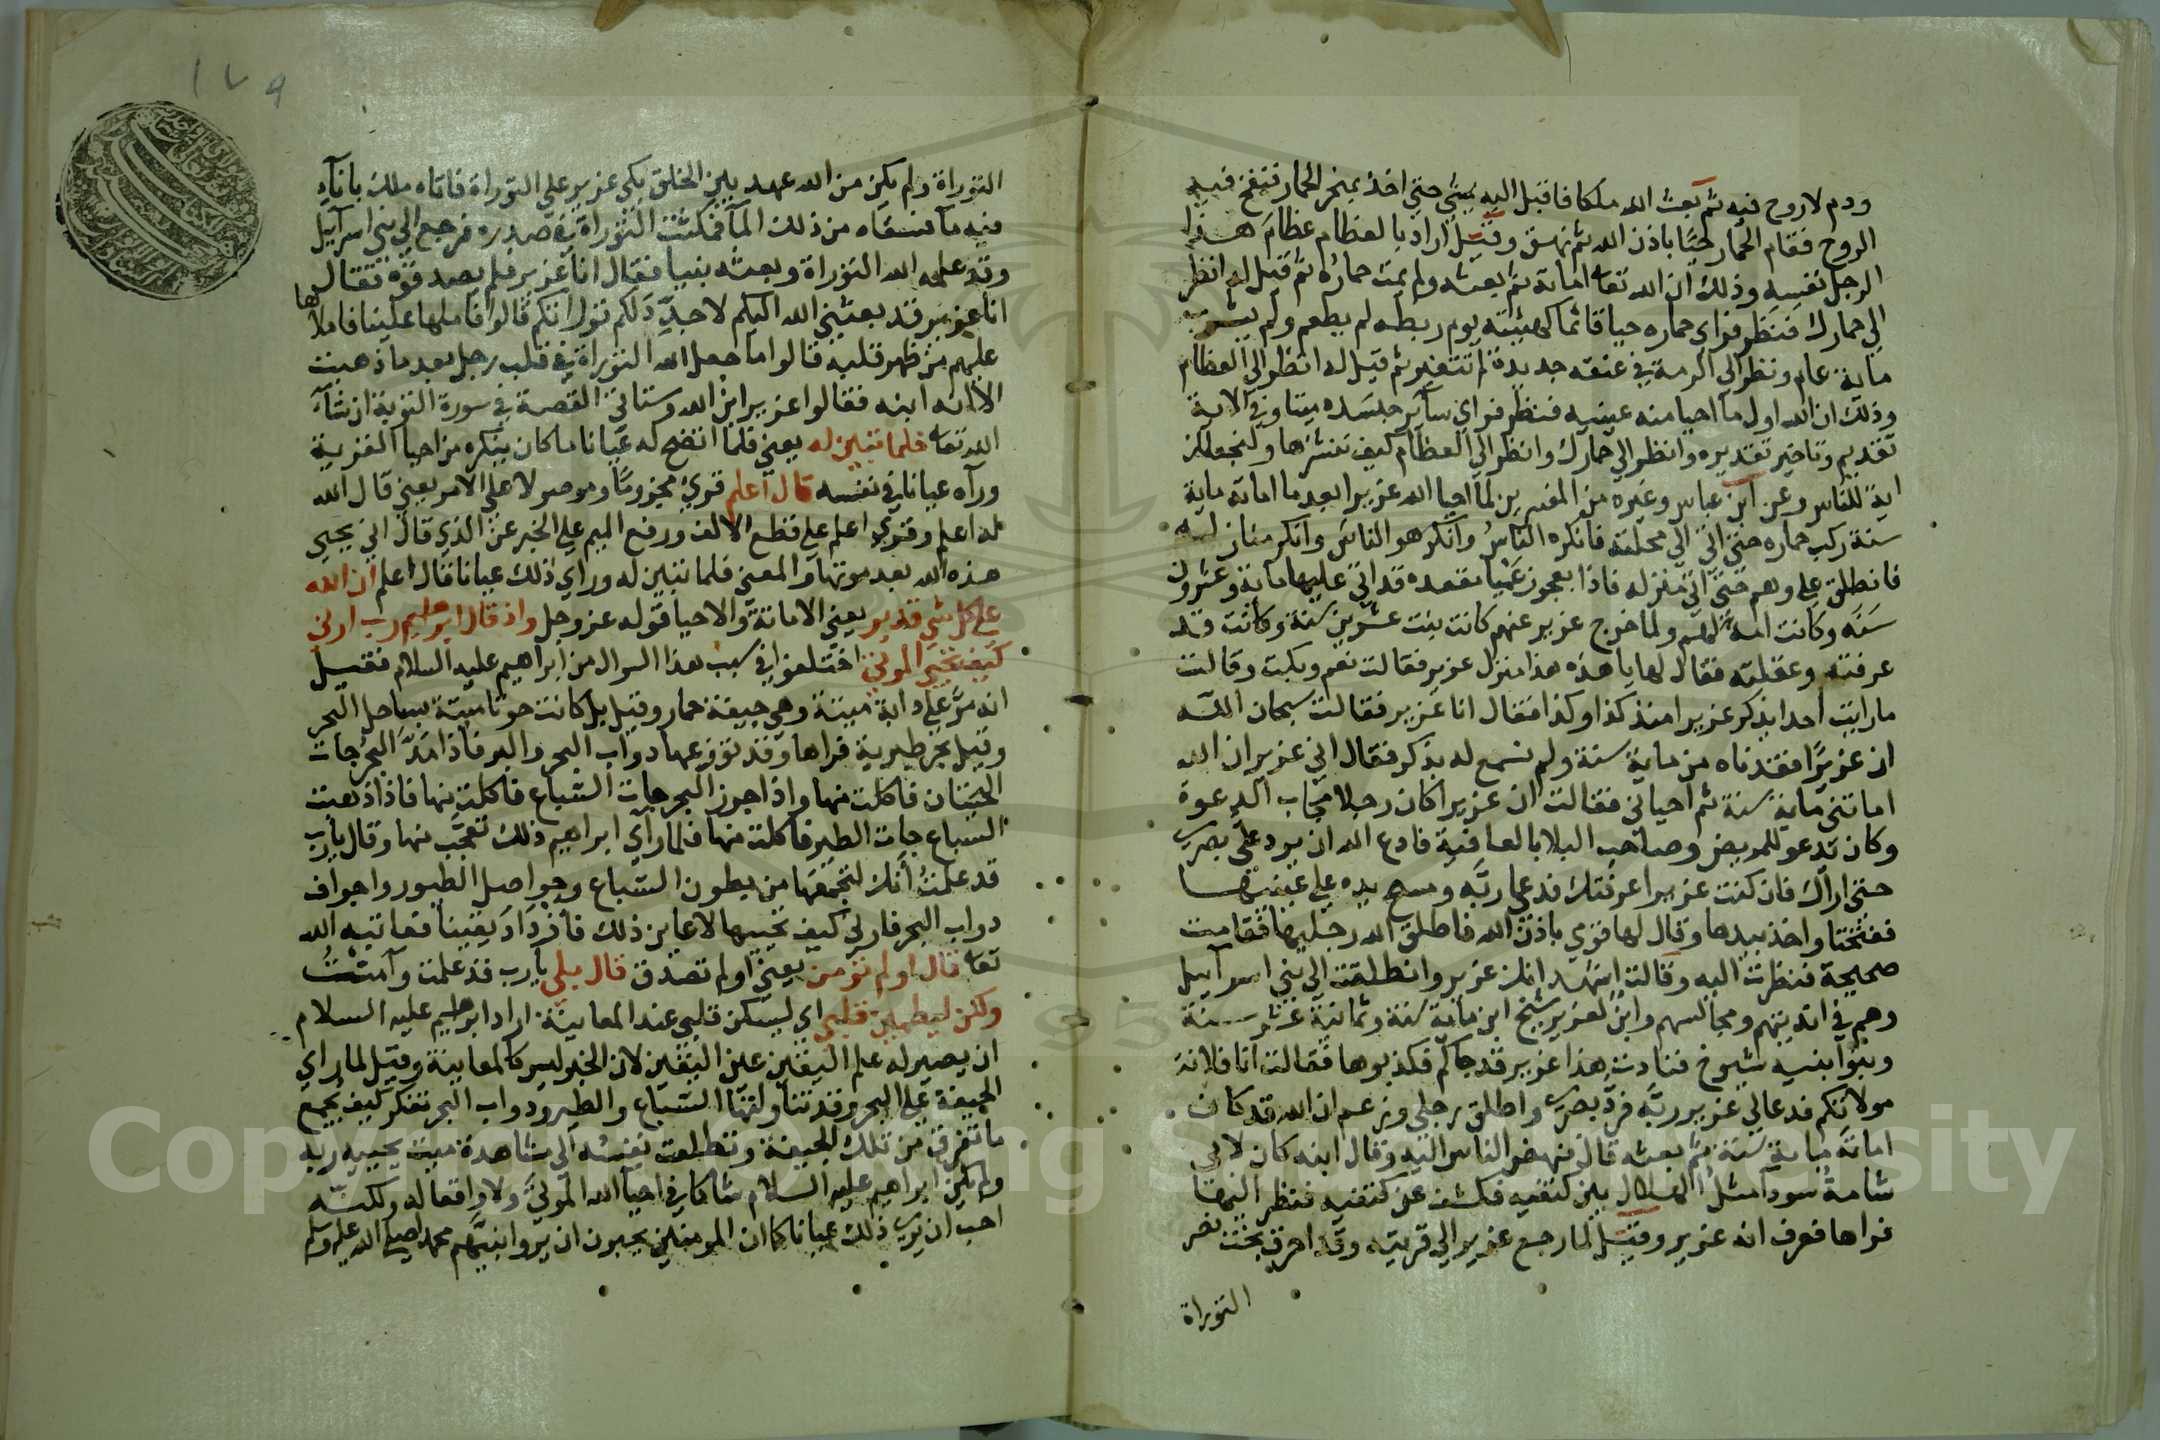 ودم لا روح فيه ثم بعث الله ملكا فاقبل اليه يمشي حتى اخذ بمنخر الحمار فنفخ فيه
الروح فقام الحمار حيا باذن الله ثم نهق وقيل اراد بالعظام عظام هذا
الرجل نفسه وذلك ان الله تعا اماته ثم بعثه ولم يمت حماره ثم قيل له انظر
الى حمارك فنظر فراي حماره حيا قائما كهيئته يوم ربطه لم يطعم ولم يشرب
ماية عام ونظر الى الرمة في عنقه جديدة لم تتغير ثم قيل له انظر الى العظام
وذلك ان الله اول ما احيا منه عينيه فنظر فراي ساير جسده ميتا وفي الاية
تقديم وتاخير تقديره وانظر الى حمارك وانظر الى العظام كيف ننشزها ولنجعلك
اية للناس وعن ابن عباس وغيره من المفسرين لما احيا الله عزيرا بعد ما اماته ماية
سنة ركب حماره حتى اتى الى محلته فانكره الناس وانكر هو الناس وانكر منازله
فانطلق على وهم حتى اتى منزله فاذا بعجوز عميا مقعده قد اتى عليها ماية وعشرون
سنه وكانت امة لهم ولما خرج عزير عنهم كانت بنت عشرين سنة وكانت قد
عرفته وعقلته فقال لها يا هذه هذا منزل عزير فقالت نعم وبكت وقالت
ما رايت احدا يذكر عزيرا منذ كذا وكذا فقال انا عزير فقالت سبحان الله
ان عزيرا فقدناه من ماية سنة ولم نسمع له بذكر فقال اني عزير ان الله
اماتني ماية سنة ثم احياني فقالت ان عزيرا كان رجلا مجاب الدعوة
وكان يدعو للمريض وصاحب البلا بالعافية فادع الله ان يرد علي بصري
حتى اراك فان كنت عزيرا عرفتك فدعا ربه ومسح يده على عينيها
ففتحتا واخذ بيدها وقال لها قومي باذن الله فاطلق الله رجليها فقامت
صحيحة فنظرت اليه وقالت اشهد انك عزير وانطلقت الى بني اسرآييل
وهم في انديتهم ومجالسهم وابن لعزير شيخ ابن ماية سنة وثمانية عشر سنة
وبنوا بنيه شيوخ فنادت هذا عزير قد جاكم فكذبوها فقالت انا فلانة
مولاتكم فدعا لي عزير ربه فرد بصري واطلق رجلي وزعم ان الله قد كان
اماته ماية سنة ثم بعثه قال فنهض الناس اليه وقال ابنه كان لابي
شامة سودآ مثل الهلال بين كتفيه فكشف عن كتفيه فنظر اليها
فراها فعرف انه عزير وقيل لما رجع عزير الى قريته وقد احرق بخت نصر
التوراة
١٧٩
التوراة ولم يكن من الله عهد بين الخلق بكى عزير على التوراة فاتاه ملك باناء
فيه ما فسقاه من ذلك المآ فمكثت التوراة في صدره فرجع الى بني اسرآييل
وقد علمه الله التوراة وبعثه نبيا فقال انا عزير فلم يصدقوه فقال
انا عزير قد بعثني الله اليكم لاجدد لكم توراتكم قالوا فاملها علينا فاملاها
عليهم من ظهر قلبه قالوا ما جعل الله التوراة في قلب رجل بعد ما ذهبت
الا انه ابنه فقالوا عزير ابن الله وستاتي القصة في سورة التوبة ان شآء
الله تعا فلما تبين له يعني فلما اتضح له عيانا ما كان ينكره من احيا القرية
ورآه عيانا في نفسه قال اعلم قري مجزوما وموصولا على الامر يعني قال الله
له اعلم وقري اعلم على قطع الالف ورفع الميم على الخبر عن الذي قال اني يحيي
هذه الله بعد موتها والمعنى فلما تبين له وراي ذلك عيانا قال اعلم ان الله
على كل شي قدير يعني الاماتة والاحيا قوله عز وجل واذ قال ابرهيم رب ارني
كيف تحيي الموتى اختلفوا في سبب هذا السوال من ابراهيم عليه السلام فقيل
انه مر على دابة ميتة وهي جيفة حمار وقيل بل كانت حوتا ميتة بساحل البحر
وقيل بحر طبرية فراها وقد توزعها دواب البحر والبر فاذا مد البحر جات
الحيتان فاكلت منها واذا جزر البحر جات السباع فاكلت منها فاذا ذهبت
السباع جات الطير فاكلت منها فلما رآي ابراهيم ذلك تعجب منها وقال يا رب
قد علمت انك لتجمعها من بطون السباع وحواصل الطيور واجواف
دواب البحر فارني كيف تحييها لاعاين ذلك فازداد يقينا فعاتبه الله
تعا قال اولم تؤمن يعني اولم تصدق قال بلى يا رب قد علمت وآمنت
ولكن ليطمين قلبي اي ليسكن قلبي عند المعاينة اراد ابرهيم عليه السلام
ان يصير له علم اليقين عين اليقين لان الخبر ليس كالمعاينة وقيل لما راي
الجيفة على البحر وقد تناولتها السباع والطير ودواب البحر تفكر كيف يجمع
ما تفرق من تلك الجيفة وتطلعت نفسه الى مشاهدة ميت يحييه ربه
ولم يكن ابراهيم عليه السلام شاكا في احيآ الله الموتى ولا دافعا له ولكنه
احب ان يرى ذلك عيانا كما ان المومنين يحبون ان يروا نبيهم محمد صلى الله عليه وسلم